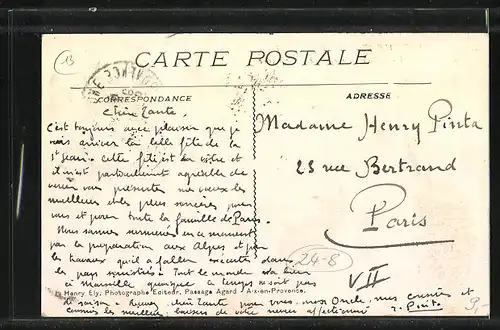 13
CARTE POSTALE
CORRESPONDANCE
ADRESSE
Chère Tante,
C'est toujours avec plaisir que je
vois arriver la belle fête de la
St Jean. Cette fête est la vôtre et
il m'est particulièrement agréable de
venir vous présenter mes vœux les
meilleurs et les plus sincères pour
vous et pour toute la famille de Paris.
Nous sommes en ce moment
par la préparation aux Alpes et par
les travaux qu'il a fallu exécuter dans
les pays sinistrés. Tout le monde va bien
à Marseille quoique le temps ne soit pas
de saison. Recevez, chère Tante, pour vous, mon Oncle, mes cousins et
cousines les meilleurs baisers de votre neveu affectionné
J. Pinta
Madame Henry Pinta
25 rue Bertrand
Paris
24-8
VII
9,-
Henry Ely, Photographe Editeur, Passage Agard - Aix-en-Provence.